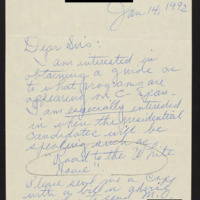 Jan 14, 1992
Dear Sirs:
I am interested in
obtaining a guide as
to what programs are
appearing on C-Span.
I am especially interested
in where the presidential
candidates will be
speaking such as
"Road to the White
House".
Please send me a copy
with a bill or advise
send M.O.